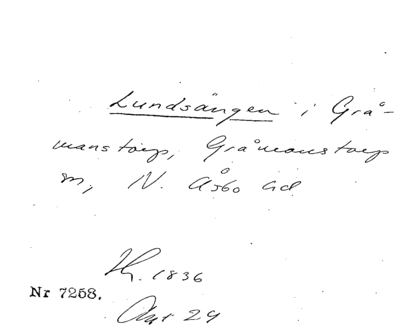 Lundsängen i Grå-
manstorp, Gråmanstorp
sn, N. Åsbo hd
1836
Nr 7258.
Akt 29